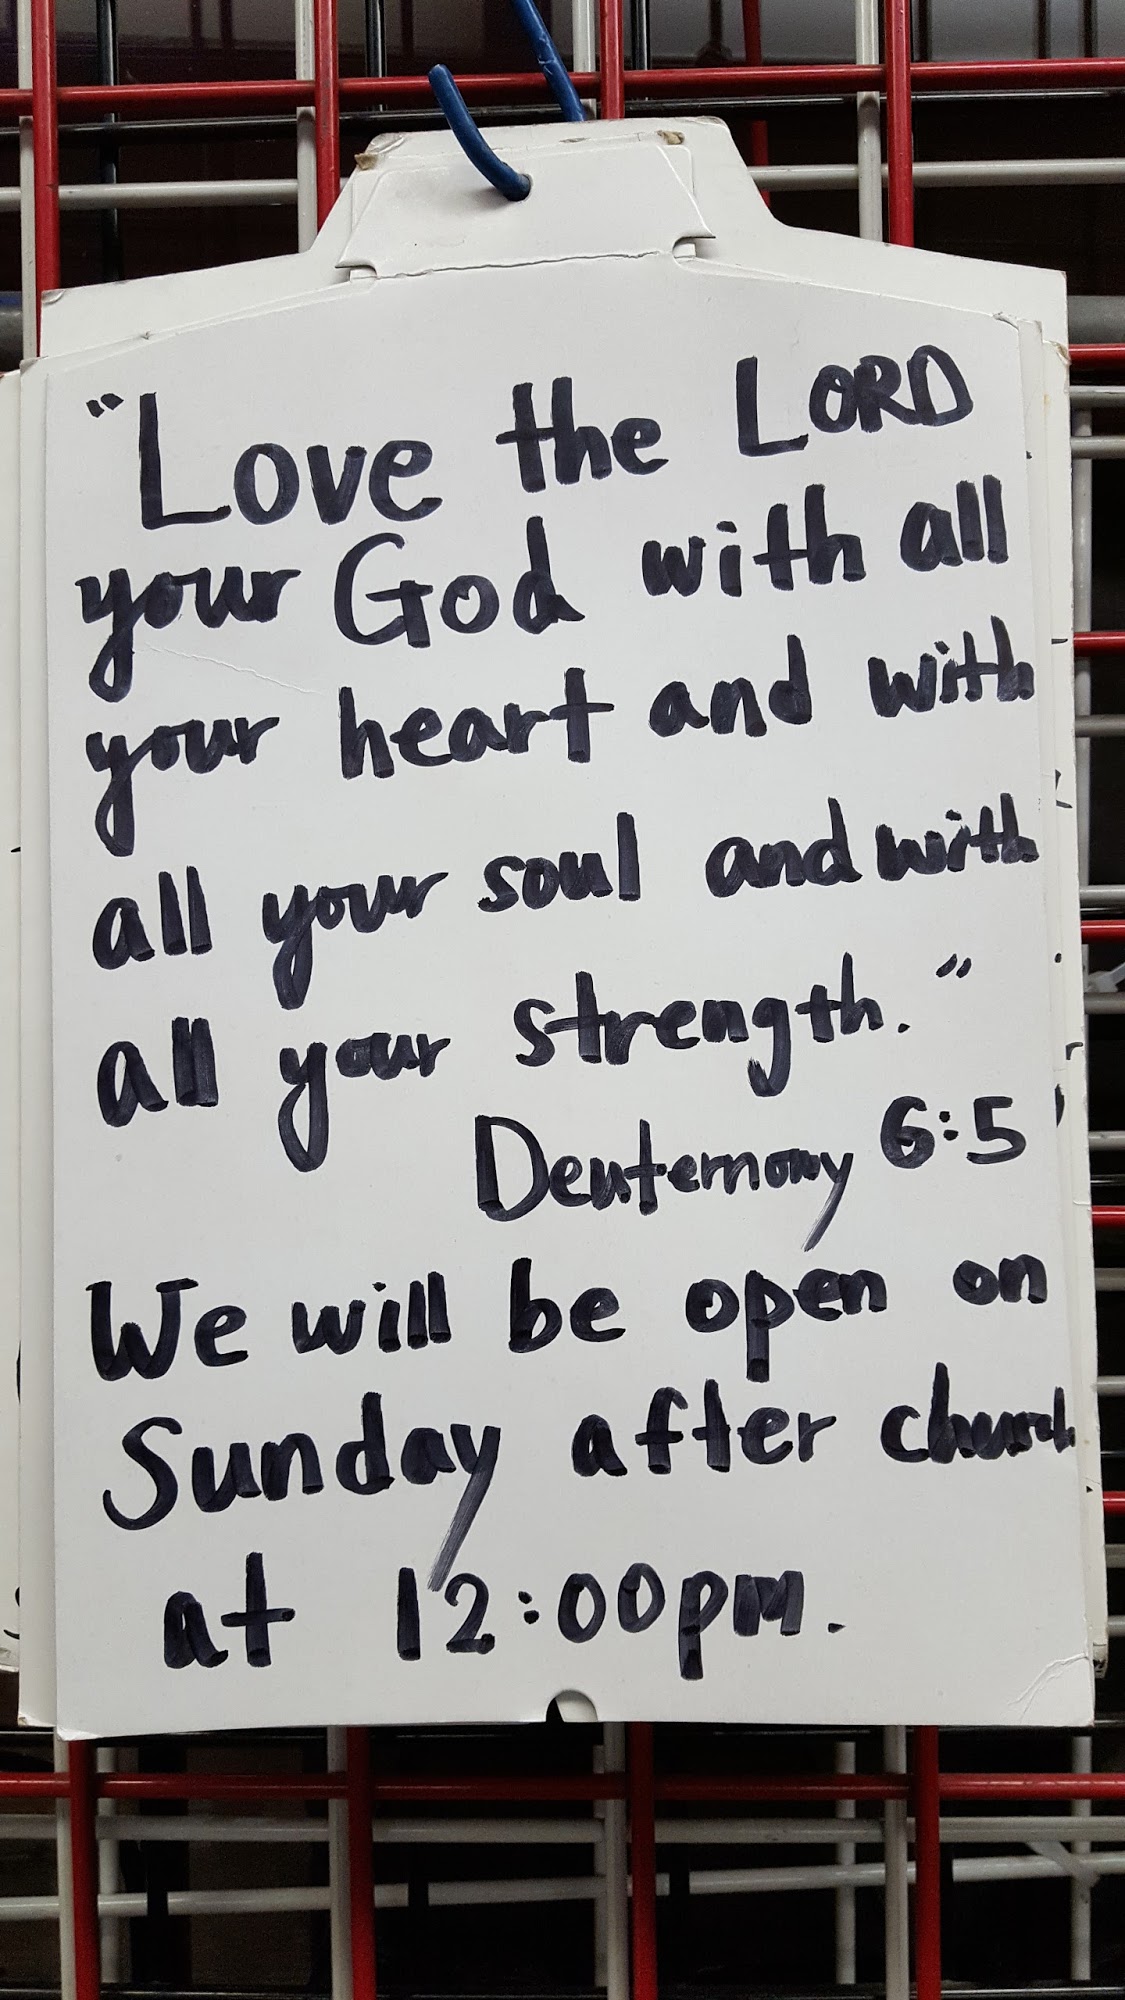 “Love the LORD
your God with all
your heart and with
all your soul and with
all your strength.”
Deuternomy 6:5
We will be open on
Sunday after church
at 12:00pm.